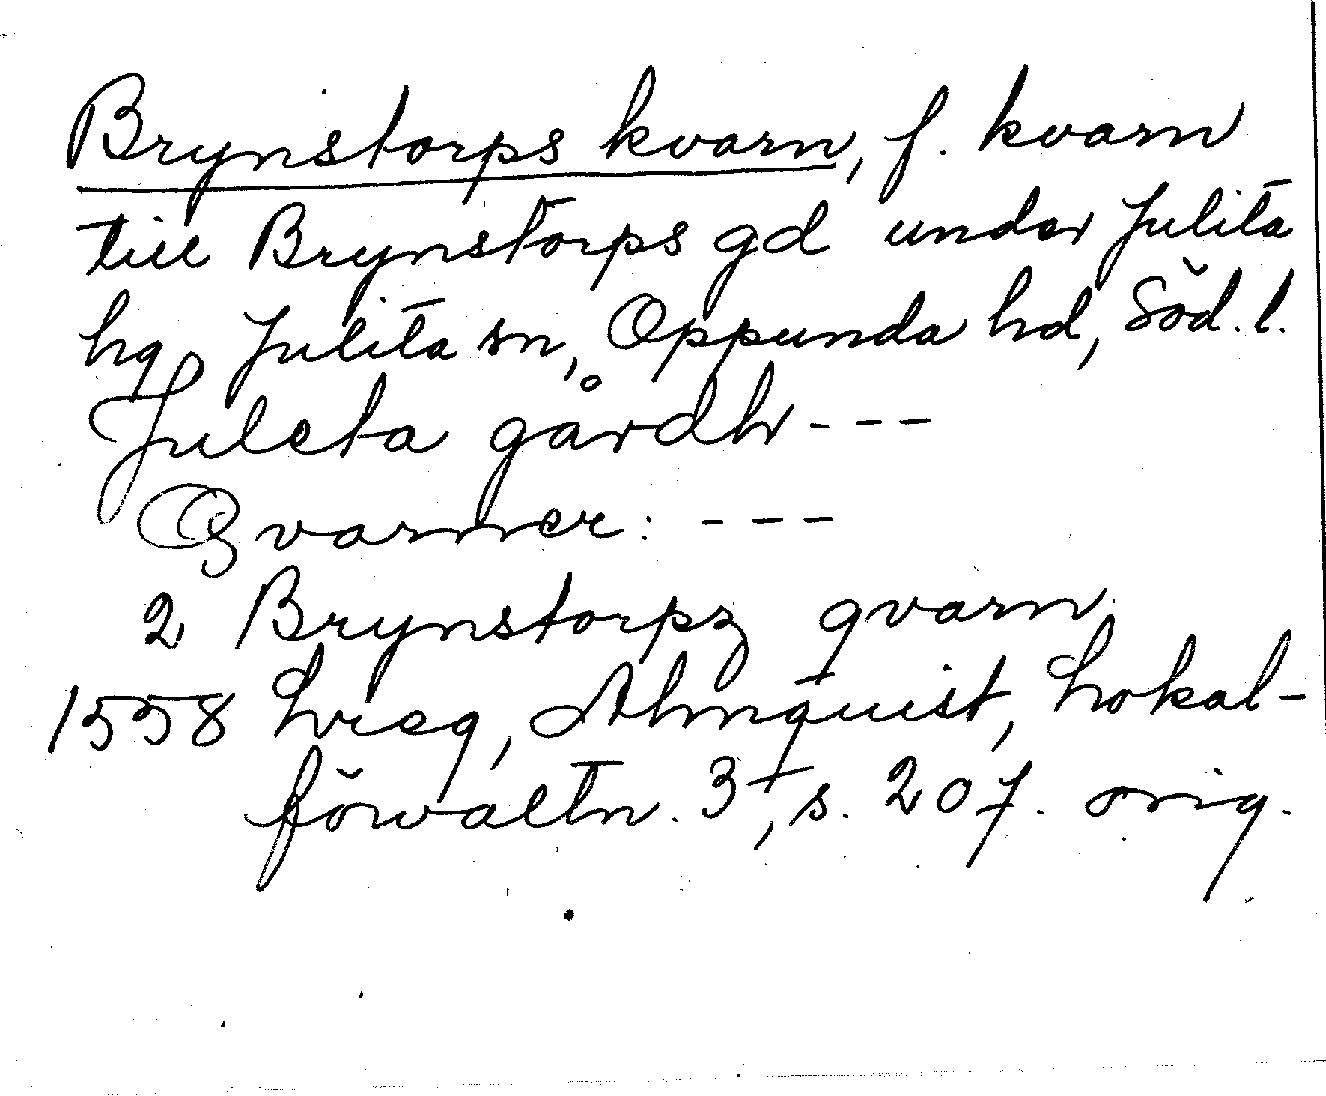 Brynstorps kvarn, f. kvarn
till Brynstorps gd under Julita
hg, Julita sn, Oppunda hd, Söd. l.
Juleta gårdh - - -
Qvarner: - - -
2 Brynstorpz qvarn
1558 Almquist, Lokal-
förvaltn. 3, s. 207. orig.